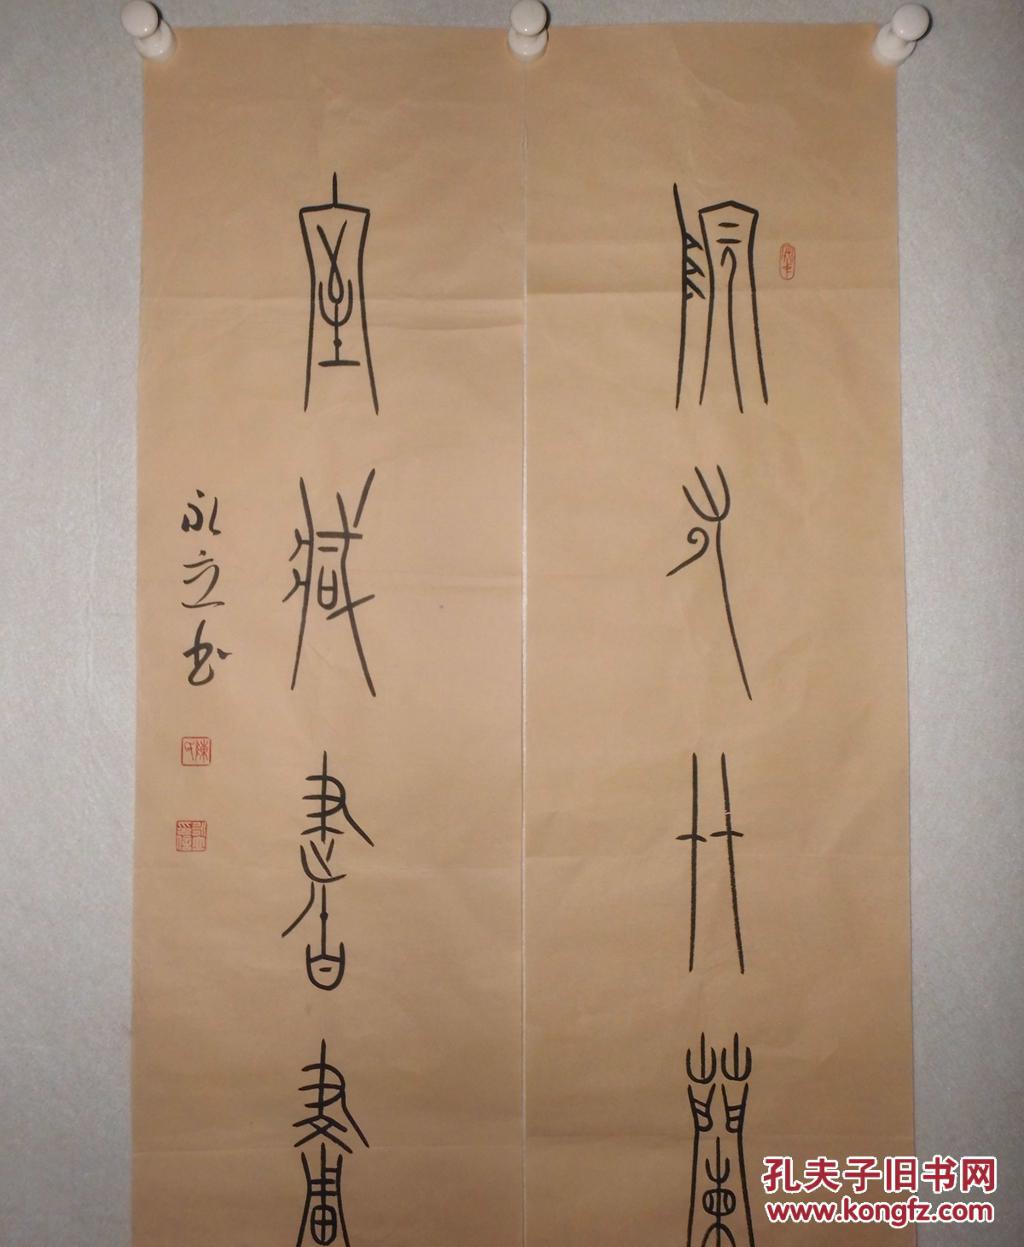 院有廿蘭
室藏書畫
永立书
陳氏
孔夫子旧书网
www.kongfz.com